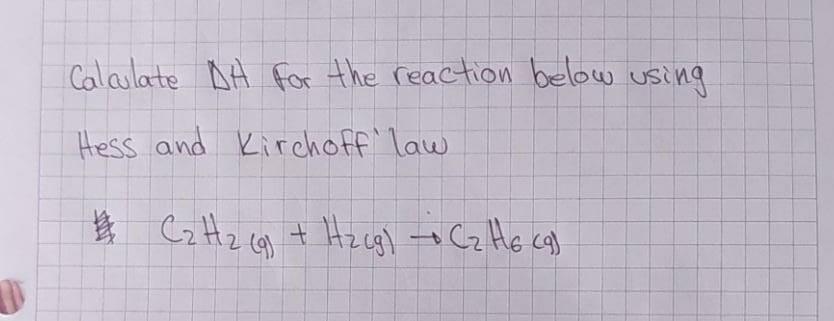 Calculate ΔH for the reaction below using
Hess and Kirchoff' law
C₂H₂(g) + H₂(g) → C₂H₆(g)